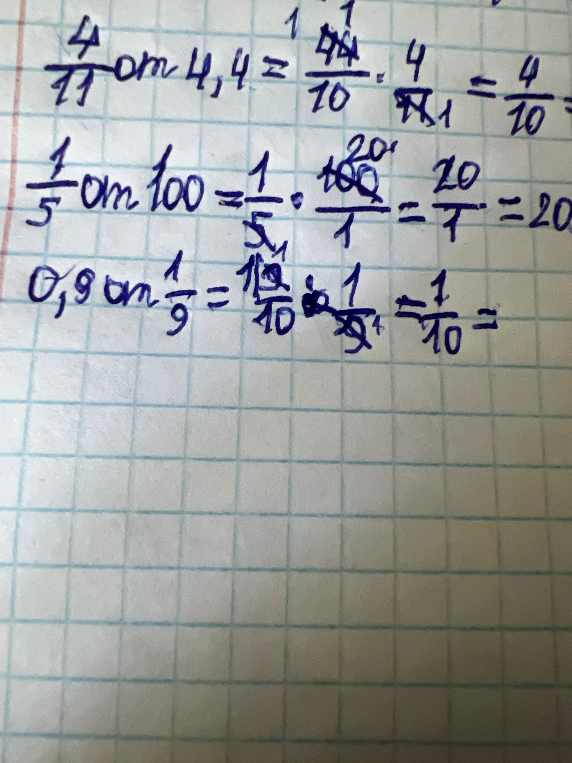 4/11 от 4,4 = 44/10 · 4/11 = 4/10 =
1/5 от 100 = 1/5 · 100/1 = 20/1 = 20
0,9 от 1/9 = 9/10 · 1/9 = 1/10 =